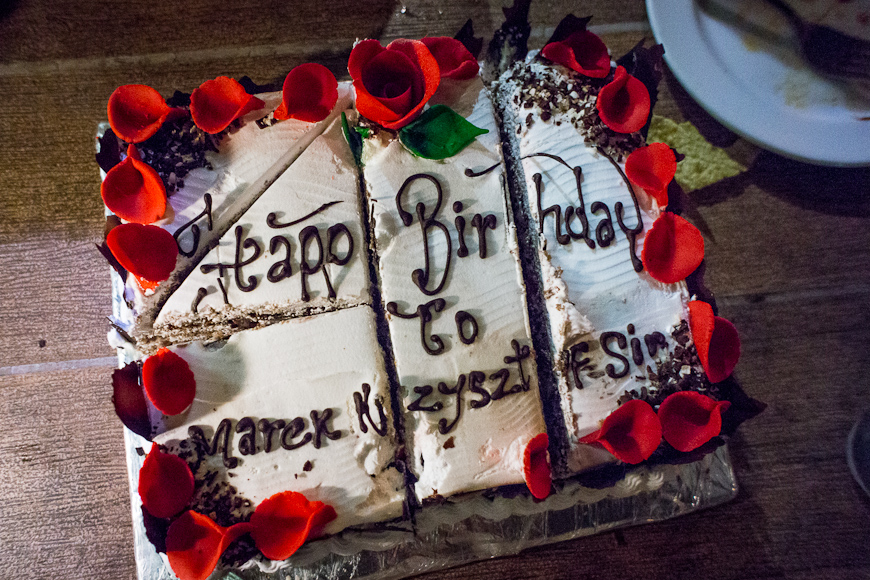 Happ Birthday
To
Marek Krzyszt F Sir